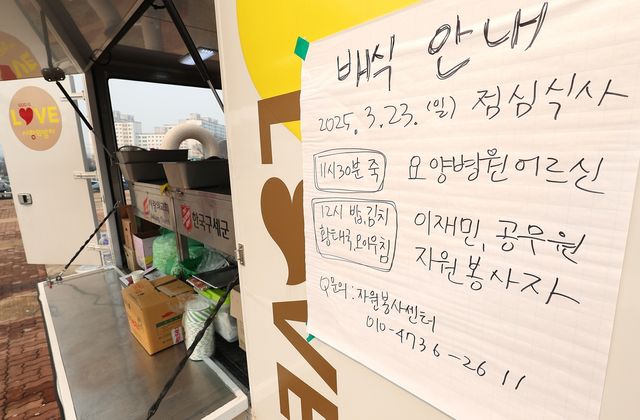 배식 안내
2025. 3. 23. (일) 점심식사
11시30분 죽 요양병원어르신
12시 밥,김치 이재민, 공무원
황태국,오이무침 자원봉사자
Q문의 : 자원봉사센터
010-4736-2611
LOVE
LOVE
한국구세군